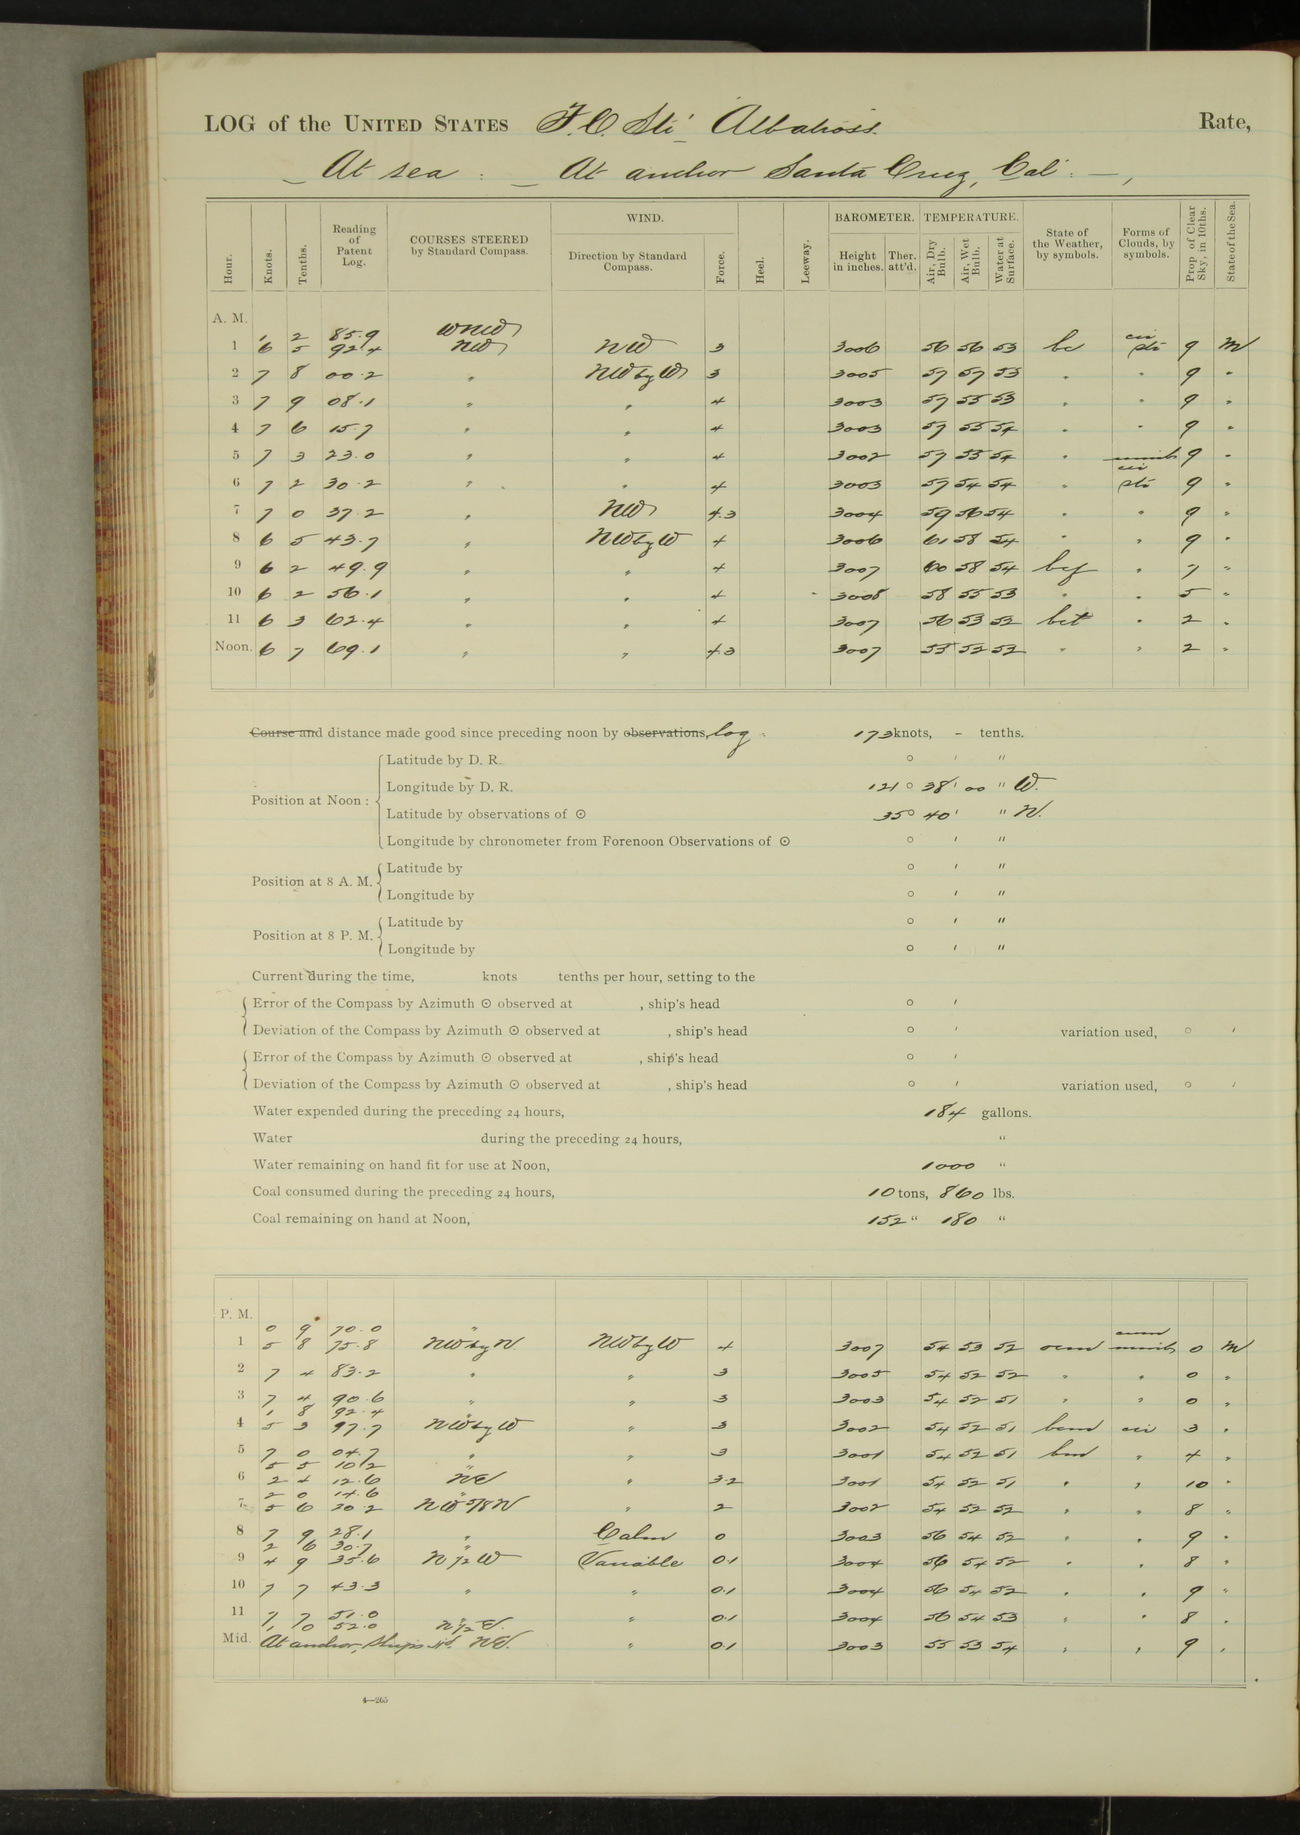 LOG of the UNITED STATES F. C. Str. Albatross. Rate,
At sea : At anchor Santa Cruz, Cal :
WIND. BAROMETER. TEMPERATURE.
Hour. Knots. Tenths. Reading of Patent Log. COURSES STEERED by Standard Compass. Direction by Standard Compass. Force. Heel. Leeway. Height in inches. Ther. att'd. Air, Dry Bulb. Air, Wet Bulb. Water at Surface. State of the Weather, by symbols. Forms of Clouds, by symbols. Prop. of Clear Sky, in 10ths. State of the Sea.
A. M.
1 2 85.9 WNW
1 6 5 92.4 NW NW 3 3006 56 56 53 bc cir str 9 M
2 7 8 00.2 " NW by W 3 3005 57 57 53 " " 9 "
3 7 9 08.1 " " 4 3003 57 55 53 " " 9 "
4 7 6 15.7 " " 4 3003 57 55 54 " " 9 "
5 7 3 23.0 " " 4 3002 57 55 54 " 9 "
6 7 2 30.2 " " 4 3003 57 54 54 " cir str 9 "
7 7 0 37.2 " NW 4.3 3004 59 56 54 " " 9 "
8 6 5 43.7 " NW by W 4 3006 61 58 54 " " 9 "
9 6 2 49.9 " " 4 3007 60 58 54 bcf " 7 "
10 6 2 56.1 " " 4 3008 58 55 53 " " 5 "
11 6 3 62.4 " " 4 3007 56 53 52 " 2 "
Noon. 6 7 69.1 " " 4.3 3007 55 52 52 " " 2 "
Course and distance made good since preceding noon by observations, log. 173 knots, – tenths.
Latitude by D. R. ° ' "
Position at Noon : Longitude by D. R. 121 ° 38 ' 00 " W.
Latitude by observations of ☉ 35° 40' " N.
Longitude by chronometer from Forenoon Observations of ☉ ° ' "
Position at 8 A. M. Latitude by ° ' "
Longitude by ° ' "
Position at 8 P. M. Latitude by ° ' "
Longitude by ° ' "
Current during the time, knots tenths per hour, setting to the
Error of the Compass by Azimuth ☉ observed at , ship's head ° '
Deviation of the Compass by Azimuth ☉ observed at , ship's head ° ' variation used, ° '
Error of the Compass by Azimuth ☉ observed at , ship's head ° '
Deviation of the Compass by Azimuth ☉ observed at , ship's head ° ' variation used, ° '
Water expended during the preceding 24 hours, 184 gallons.
Water during the preceding 24 hours, "
Water remaining on hand fit for use at Noon, 1000 "
Coal consumed during the preceding 24 hours, 10 tons, 860 lbs.
Coal remaining on hand at Noon, 152 " 180 "
P. M.
0 9 70.0 "
1 5 8 75.8 NW by N. NW by W 4 3007 54 53 52 0 M
2 7 4 83.2 " " 3 3005 54 52 52 " " 0 "
3 7 4 90.6 " " 3 3003 54 52 51 " " 0 "
1 8 92.4 "
4 5 3 97.7 NW by W " 3 3002 54 52 51 bcm cir 3 "
5 7 0 04.7 " " 3 3001 54 52 51 bm " 4 "
5 5 10.2 "
6 2 4 12.6 " 3.2 3001 54 52 51 " " 10 "
2 0 14.6 "
7 5 6 20.2 " 2 3002 54 52 52 " " 8 "
8 7 9 28.1 " Calm 0 3003 56 54 52 " " 9 "
2 6 30.7 "
9 4 9 35.6 N 1/2 W Variable 0.1 3004 56 54 52 " " 8 "
10 7 7 43.3 " " 0.1 3004 56 54 52 " " 9 "
11 7 7 51.0 " " 0.1 3004 56 54 53 " " 8 "
1 0 52.0 N 1/2 E.
Mid. At anchor, Ships hd. " 0.1 3003 55 53 54 " " 9 "
4—265